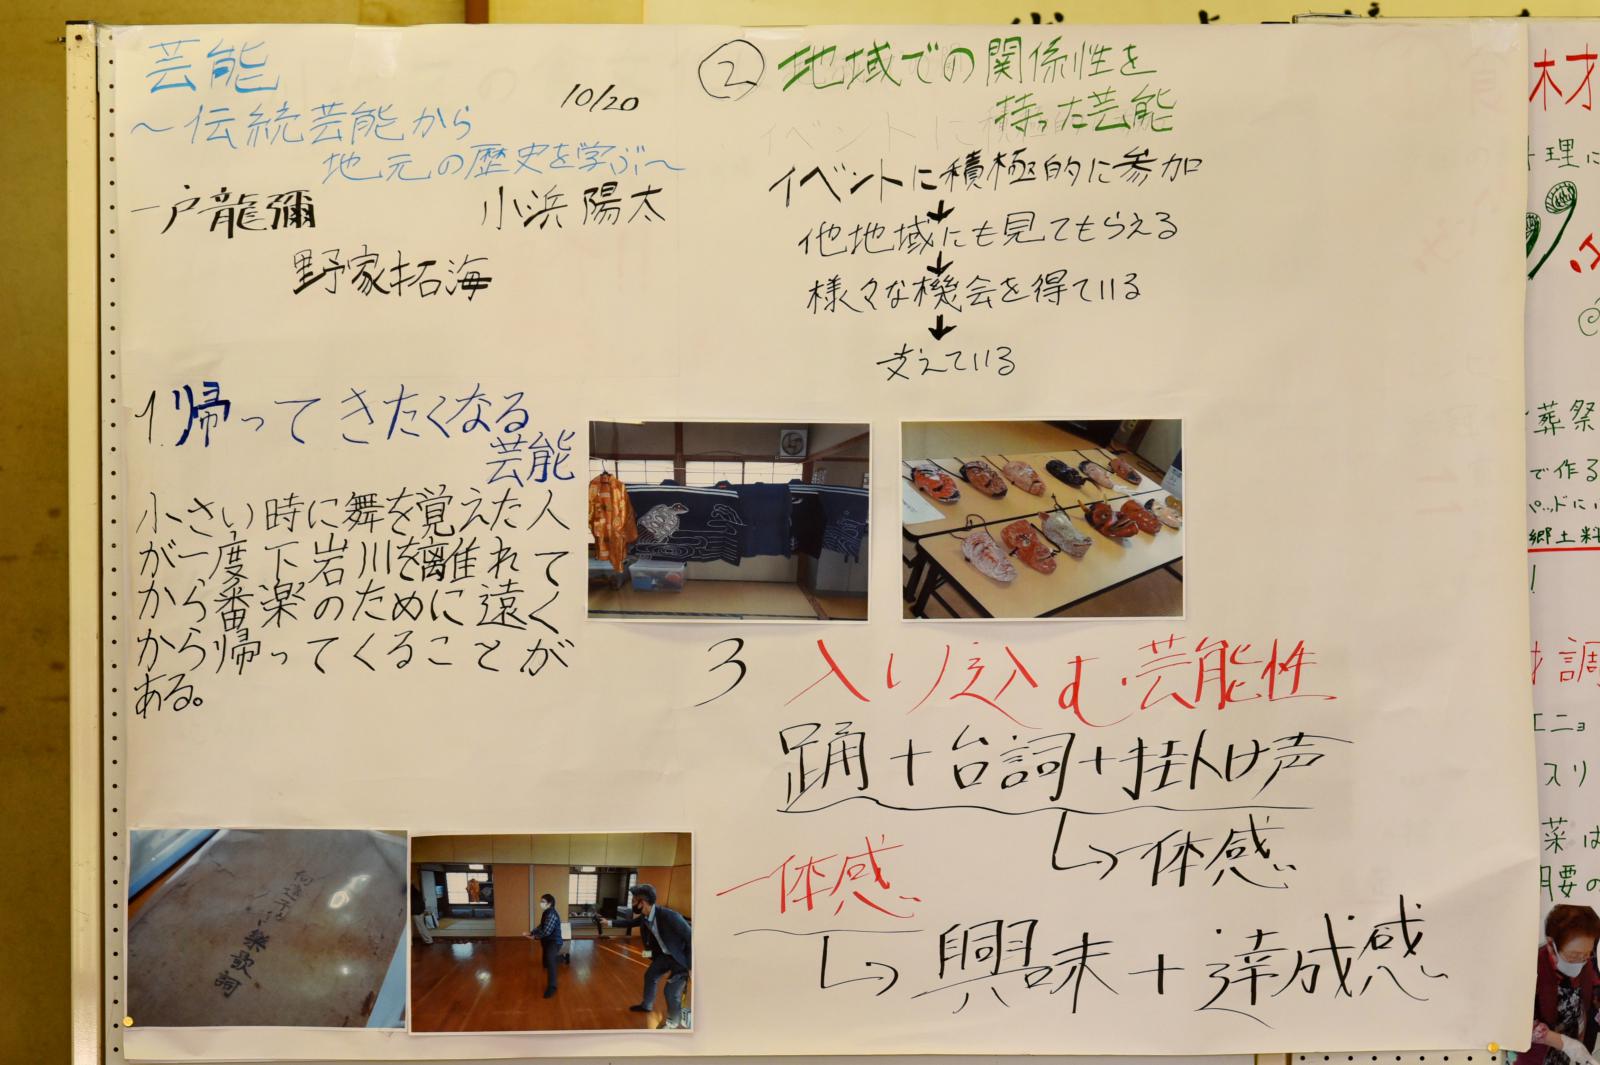 芸能
～伝統芸能から
地元の歴史を学ぶ～
10/20
一戸龍彌
小浜陽太
野家拓海
1 帰ってきたくなる
芸能
小さい時に舞を覚えた人
が一度下岩川を離れて
から番楽のために遠く
から帰ってくることが
ある。
② 地域での関係性を
持った芸能
イベントに積極的に参加
↓
他地域にも見てもらえる
↓
様々な機会を得ている
↓
支えている
3 入り込む芸能性
踊+台詞+掛け声
一体感
一体感
興味+達成感
楽歌詞
材
料理に
葬祭
で作る
郷土料
!
材調
エニョ
スリ
菜は
腰の